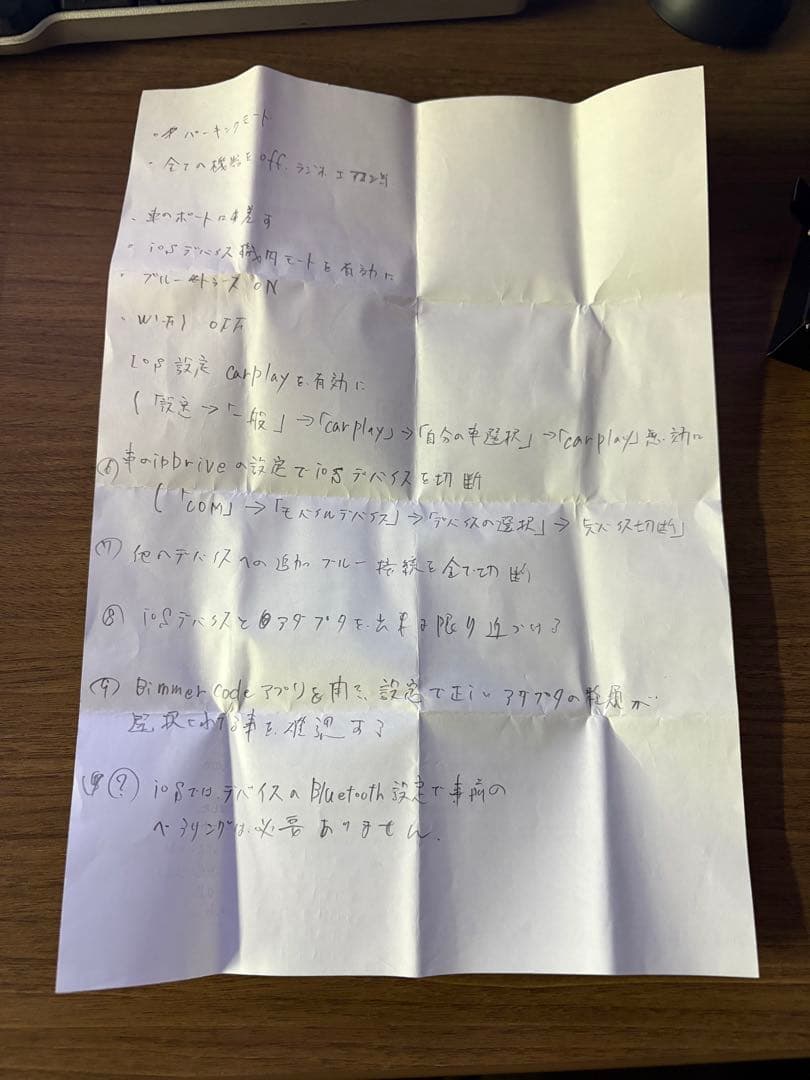 ・パーキングモード
・全ての機器をOff. ラジオ. エアコン
・車のポートに差す
・iosデバイス機内モートを有効に
・ブルートゥース ON
・WiFi OFF
ios 設定 carplayを有効に
(「設定→「一般」→「carplay」→「自分の車選択」→「carplay」無効に
⑥ 車のiDriveの設定でiosデバイスを切断
(「COM」→「モバイルデバイス」→「デバイスの選択」→「デバイス切断」
⑦ 他のデバイスへの追加ブルー接続を全て切断
⑧ iosデバイスとアダプタを出来る限り近づける
⑨ Bimmer codeアプリを開き、設定で正しいアダプタの種類が
選択されてる事を確認する
(?) iosではデバイスのBluetooth設定で事前の
ペアリングは必要ありません.